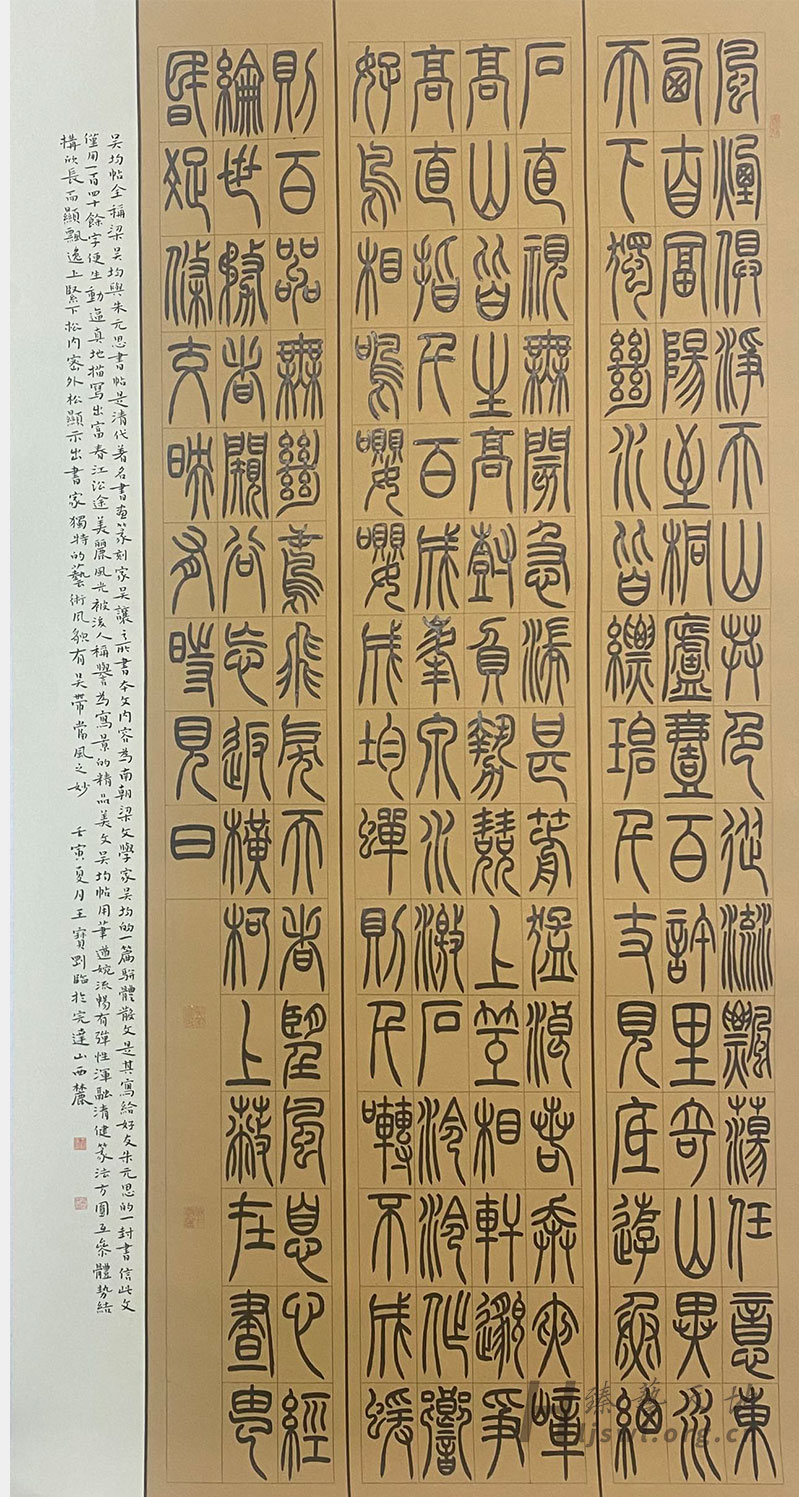 風煙俱淨天山共色從流飄蕩任意東
西自富陽至桐廬壹百許里奇山異水
天下獨絕水皆縹碧千丈見底遊魚細
石直視無閡急湍甚箭猛浪若奔夾嶂
高山皆生高樹負勢競上互相軒邈爭
高直指千百成峯泉水激石泠泠作響
好鳥相鳴嚶嚶成均蟬則千囀不成蝯
則百嘂無絕鳶飛戾天者望風息心經
綸世務者闚谷忘返橫柯上蔽在晝
昏疎條交映有時見日
吳均帖全稱梁吳均與朱元思書帖是清代著名書畫篆刻家吳讓之所書本文內容為南朝梁文學家吳均的一篇駢體散文是其寫給好友朱元思的一封書信此文
僅用一百四十餘字便生動逼真地描寫出富春江沿途美麗風光被後人稱譽為寫景的精品美文吳均帖用筆遒婉流暢有彈性渾融清健篆法方圓互參體勢結
構欣長而顯飄逸上緊下松內密外松顯示出書家獨特的藝術風貌有吳帶當風之妙　壬寅夏月王寶剛臨於完達山西麓
臻藝
ljsyt.org.c